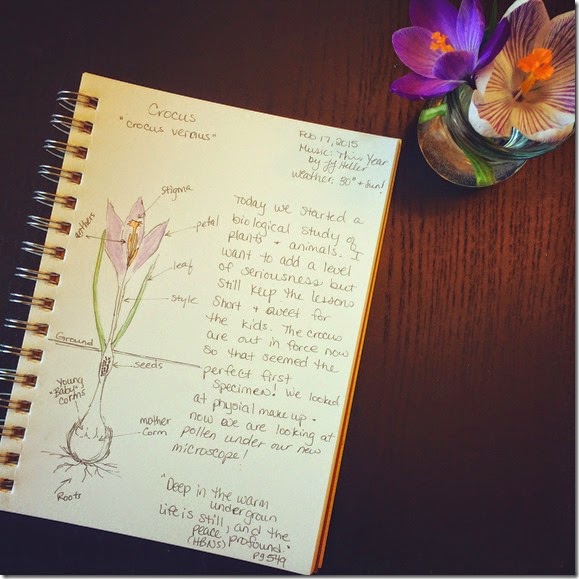 Crocus
"crocus vernus"
Feb 17, 2015
Music: This Year
by JJ Heller
weather: 50° + sun!
stigma
anthers
petal
leaf
style
Ground
seeds
Young
"Baby"
Corms
mother
Corm
Roots
Today we started a
biological study of
plants + animals. I
want to add a level
of seriousness but
still keep the lessons
short + sweet for
the kids. The crocus
are out in force now
so that seemed the
perfect first
specimen! We looked
at physial make up.
now we are looking at
pollen under our new
microscope!
"Deep in the warm
undergroun
life is still, and the
peace profound."
(HBNS) pg 549